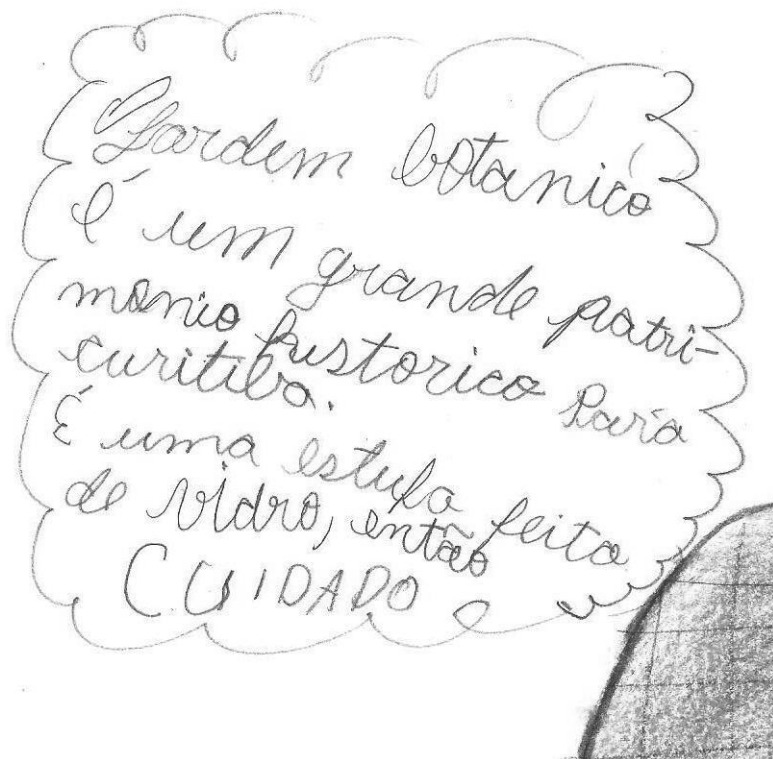 Jardem botanico
é um grande patri-
monio historico para
curitiba.
É uma estufa feita
de vidro, então
CUIDADO